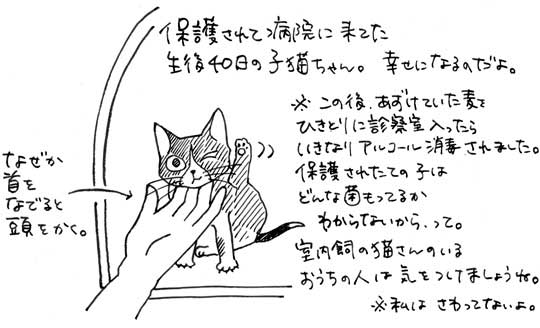 保護されて病院に来てた
生後40日の子猫ちゃん。 幸せになるのだよ。
※この後、あずけていた麦を
ひきとりに診察室入ったら
いきなりアルコール消毒されました。
保護されたての子は
どんな菌もってるか
わからないから、って。
室内飼の猫さんのいる
おうちの人は気をつけてましょうね。
※私は さわってないよ。
なぜか
首を
なでると
頭をかく。